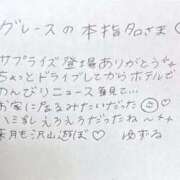 グレースの本指名さま♡
サプライズ登場ありがとう
ちょっとドライブしてからホテルで
のんびりニュース見て…
お家に居るみたいだった☺
えろえろだったね〜
来月も沢山遊ぼ♡ ゆずる